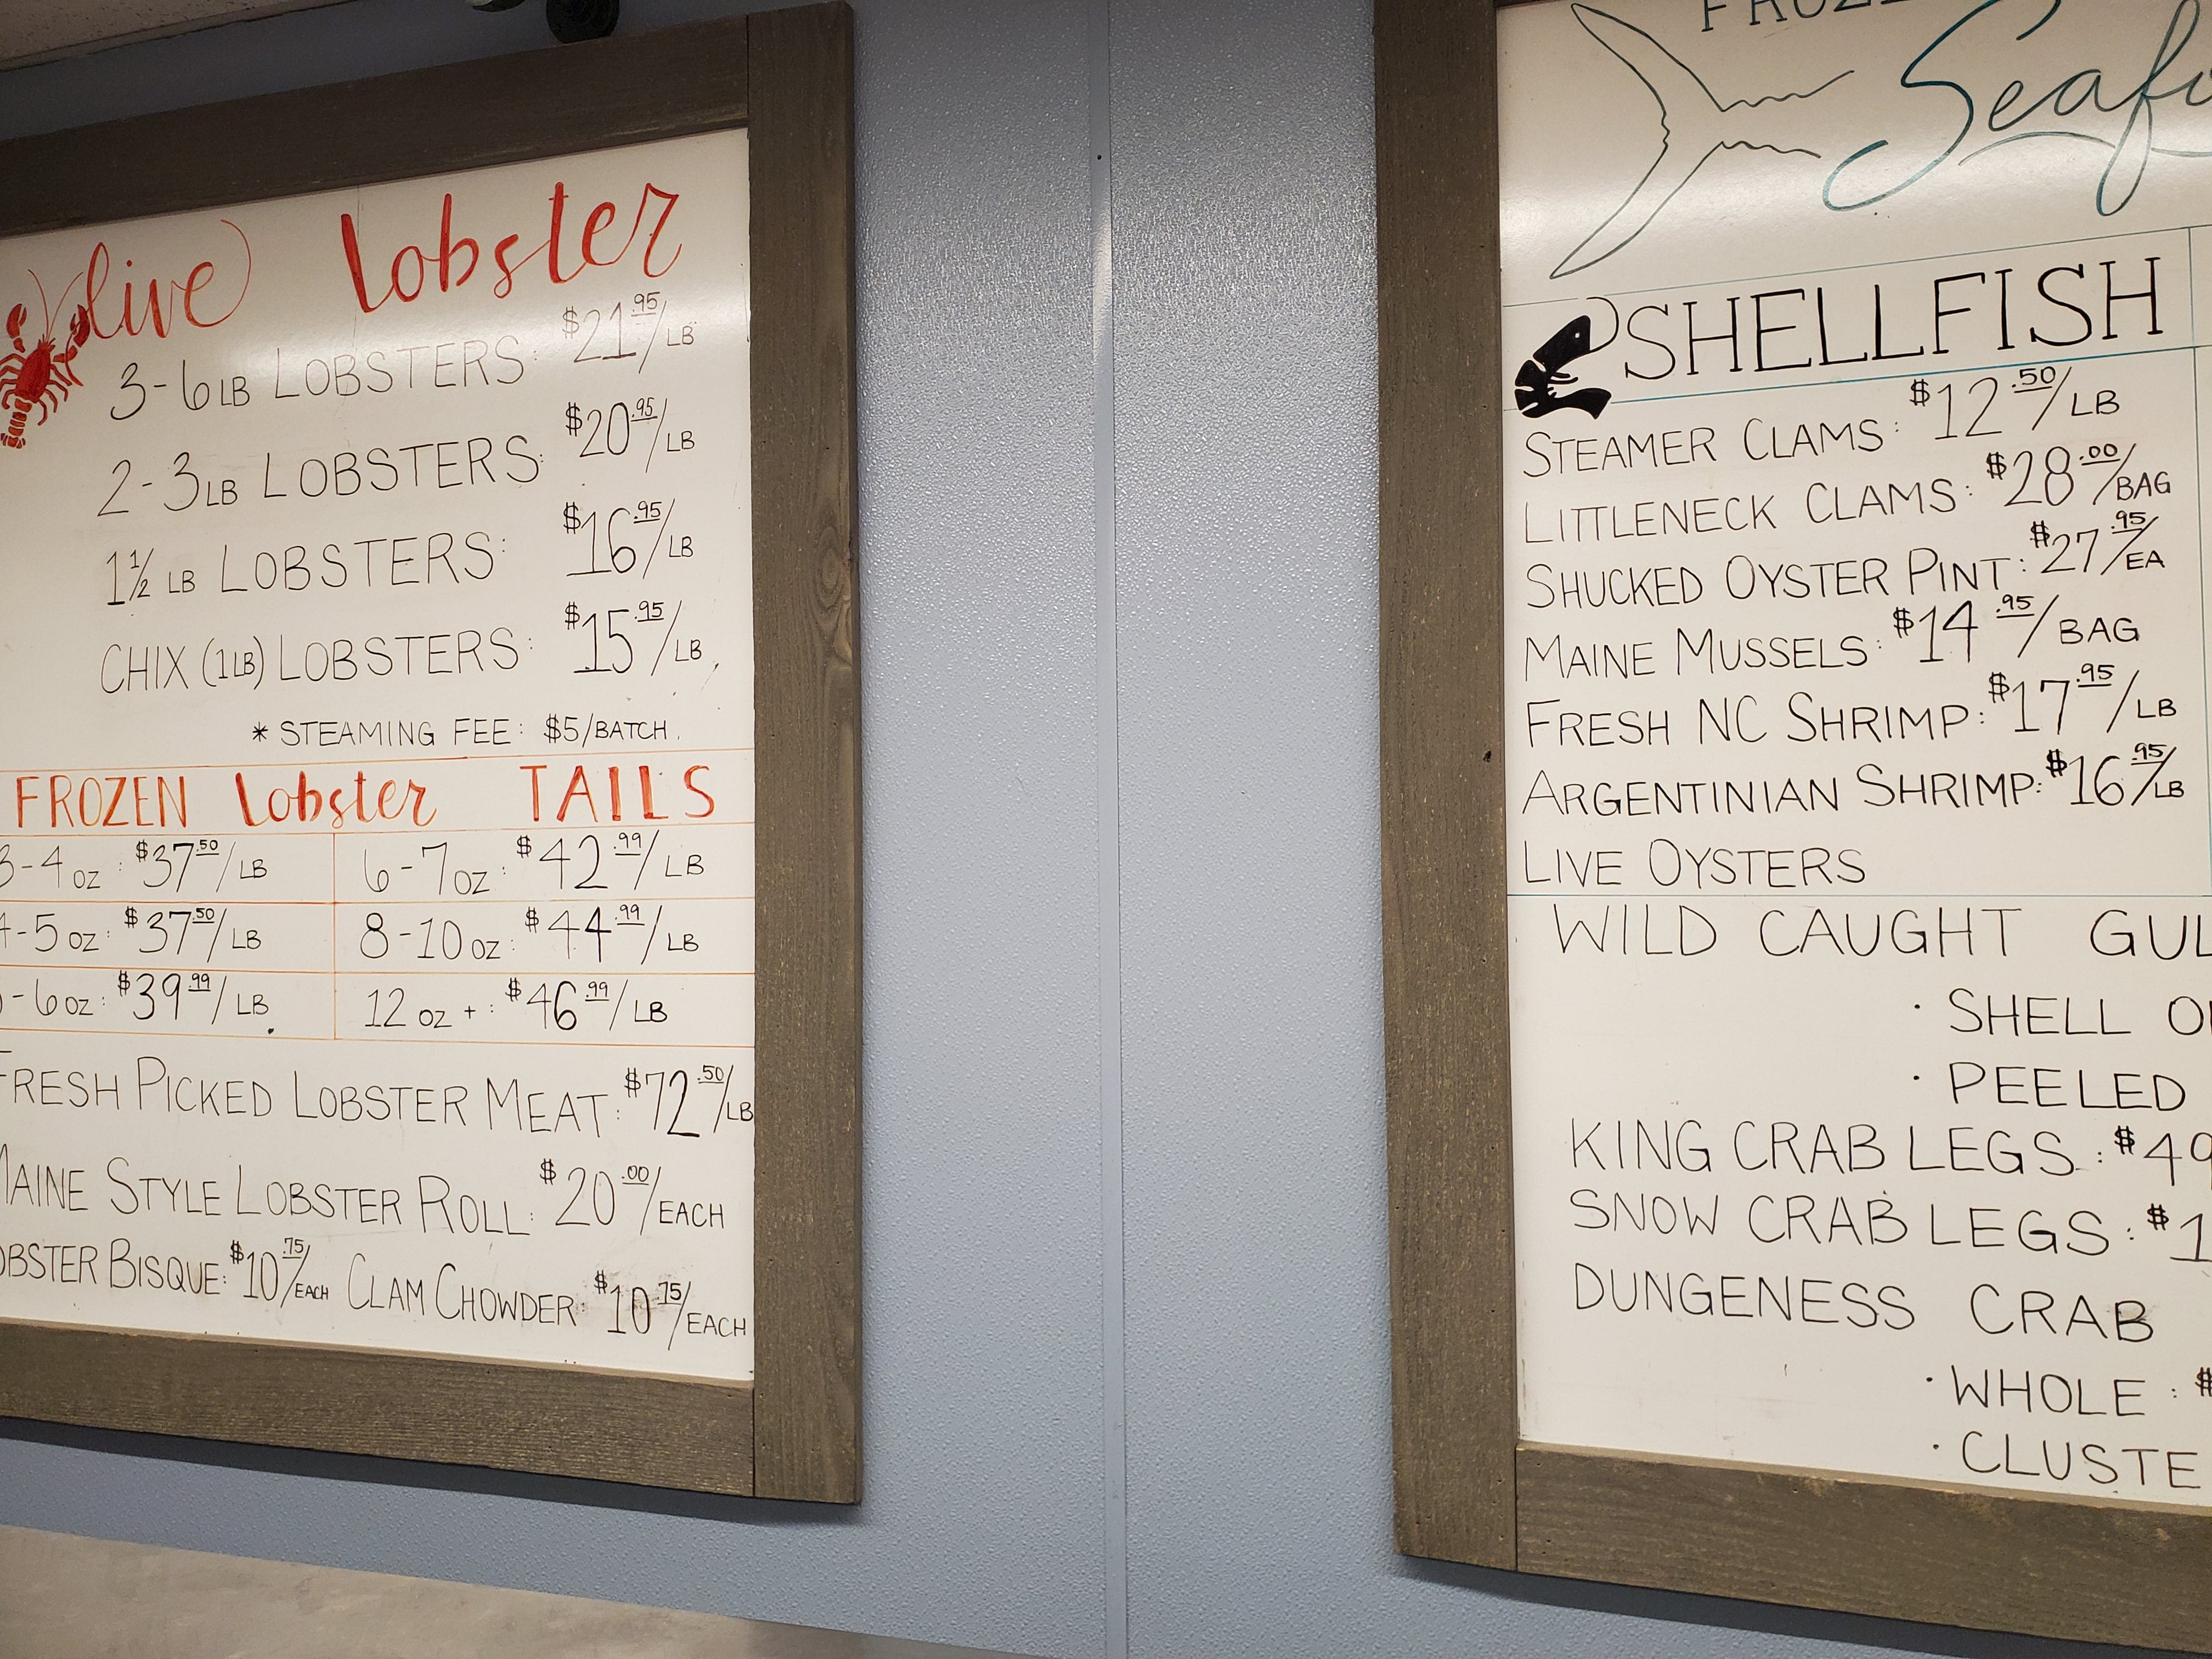 live lobster
3-6 LB LOBSTERS: $21.95/LB
2-3 LB LOBSTERS: $20.95/LB
1 1/2 LB LOBSTERS: $16.95/LB
CHIX (1 LB) LOBSTERS: $15.95/LB
* STEAMING FEE: $5/BATCH.
FROZEN lobster TAILS
3-4 OZ: $37.50/LB
6-7 OZ: $42.99/LB
4-5 OZ: $37.50/LB
8-10 OZ: $44.99/LB
-6 OZ: $39.99/LB
12 OZ +: $46.99/LB
FRESH PICKED LOBSTER MEAT: $72.50/LB
MAINE STYLE LOBSTER ROLL: $20.00/EACH
OBSTER BISQUE: $10.75/EACH CLAM CHOWDER: $10.75/EACH
FROZE
Seafo
SHELLFISH
STEAMER CLAMS: $12.50/LB
LITTLENECK CLAMS: $28.00/BAG
SHUCKED OYSTER PINT: $27.95/EA
MAINE MUSSELS: $14.95/BAG
FRESH NC SHRIMP: $17.95/LB
ARGENTINIAN SHRIMP: $16.95/LB
LIVE OYSTERS
WILD CAUGHT GUL
· SHELL O
· PEELED
KING CRAB LEGS: $49
SNOW CRAB LEGS: $1
DUNGENESS CRAB
· WHOLE: $
· CLUSTE